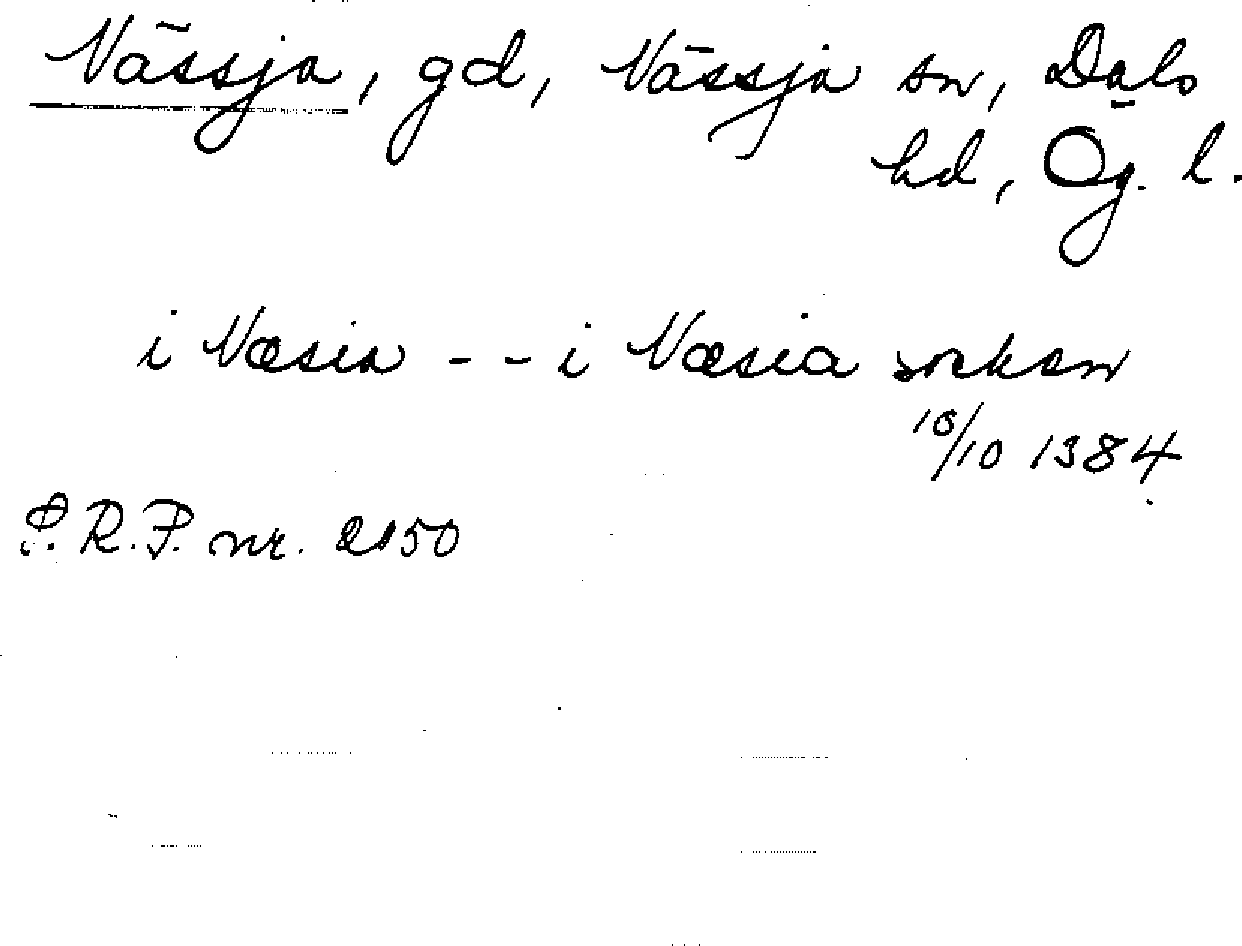 Nässja, gd, Nässja sn, Dals
hd, Ög. l.
i Næsia - - i Næsia sokan
10/10 1384
S.R.P. nr. 2150